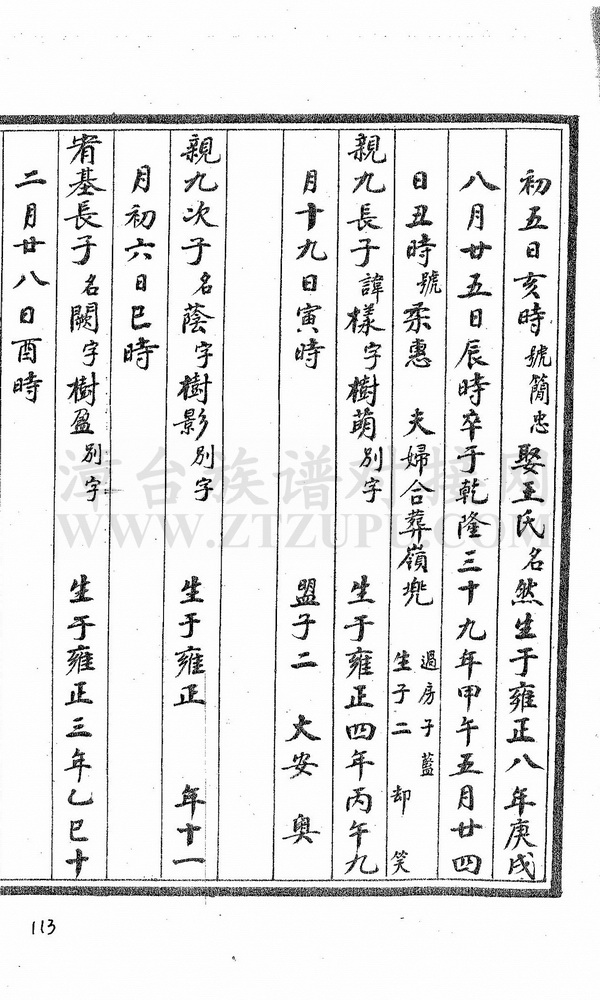 初五日亥時號簡忠娶王氏名然生于雍正八年庚戌
八月廿五日辰時卒于乾隆三十九年甲午五月廿四
日丑時號柔惠 夫婦合葬嶺兠 過房子藍 生子二 却 笑
親九長子諱樣字樹萌別字 生于雍正四年丙午九
月十九日寅時 盟子二 大安 奥
親九次子名蔭字樹影別字 生于雍正 年十一
月初六日巳時
宥基長子名闕字樹盈別字 生于雍正三年乙巳十
二月廿八日酉時
漳台族谱对接网
WWW.ZTZUPU.COM
113